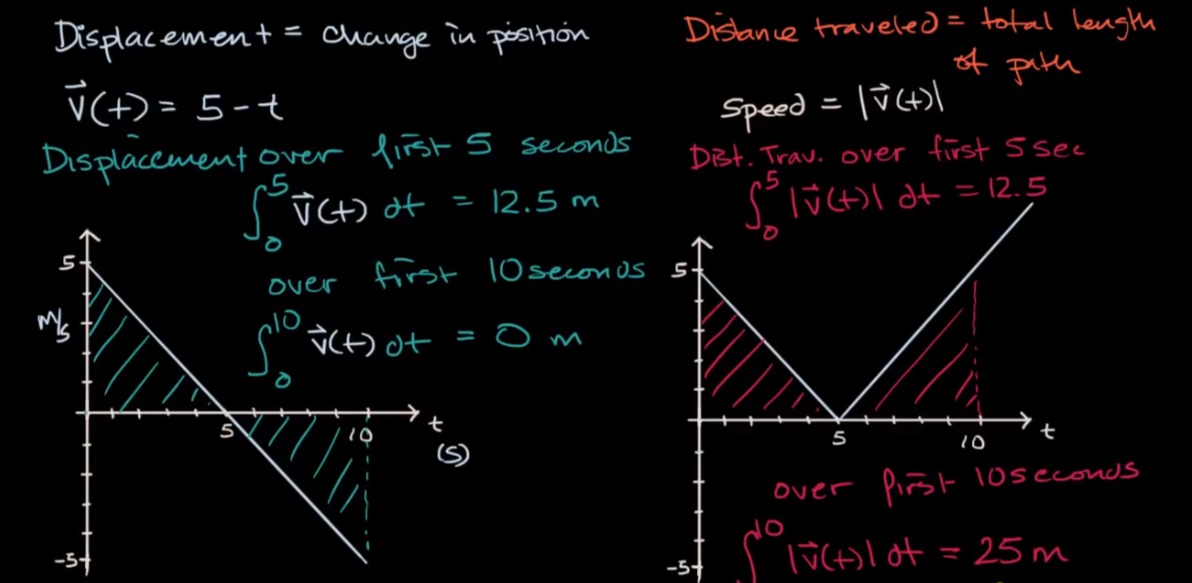 Displacement = change in position
v⃗(t) = 5 - t
Displacement over first 5 seconds
∫₀⁵ v⃗(t) dt = 12.5 m
over first 10 seconds
∫₀¹⁰ v⃗(t) dt = 0 m
5
M/s
5
10
t
(s)
-5
Distance traveled = total length
of path
Speed = |v⃗(t)|
Dist. Trav. over first 5 sec
∫₀⁵ |v⃗(t)| dt = 12.5
5
5
10
t
-5
over first 10 seconds
∫₀¹⁰ |v⃗(t)| dt = 25 m